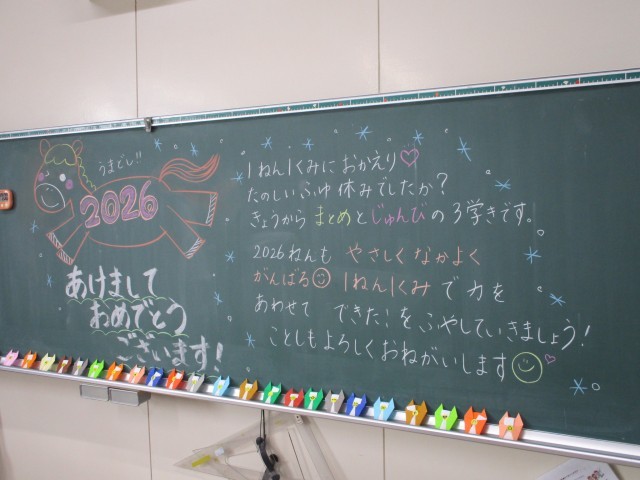 うまどし!!
2026
あけまして
おめでとう
ございます!
1ねん1くみにおかえり♡
たのしいふゆ休みでしたか?
きょうから まとめとじゅんびの3学きです。
2026ねんも やさしくなかよく
がんばる 1ねん1くみで力を
あわせて できた!をふやしていきましょう!
ことしもよろしくおねがいします